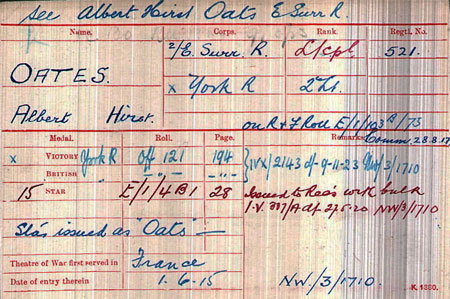 See Albert Hirst Oats E Surr R.
Name. Corps. Rank. Regtl. No.
2/E. Surr. R. L/cpl 521.
OATES. x York R 2/Lt.
Albert Hirst. on R & F Roll E/1/103 B/73
Medal. Roll. Page. Remarks. Comm. 28.8.17
x VICTORY York R Off 121 194 IVX/2143 d/- 9-11-23 NW/3/1710
BRITISH -"- -"-
15 STAR E/1/4 B1 28 Issued to Rec's with bulk
I.V. 337/A d/ 27-5-20 NW/3/1710
Star issued as "Oats"
Theatre of War first served in France
Date of entry therein 1.6.15 NW./3/1710.
K. 1380.